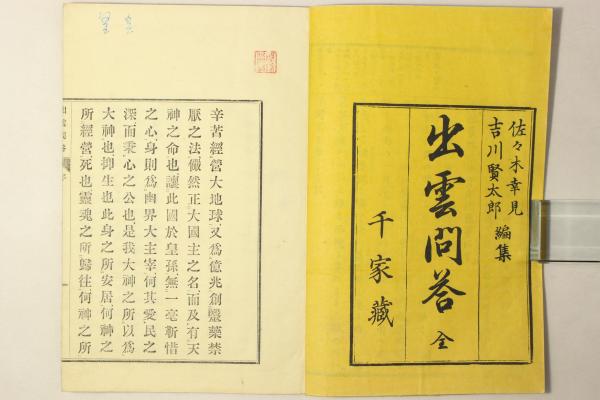 佐々木幸見
吉川賢太郎 編集
出雲問答 全
千家藏
辛苦經營大地球又爲億兆創醫藥禁
厭之法儼然正大國主之名而及有天
神之命也讓此國於皇孫無一毫靳惜
之心身則爲幽界大主宰何其愛民之
深而秉心之公也是我大神之所以爲
大神也抑生也此身之所安居何神之
所經營死也靈魂之所歸往何神之所